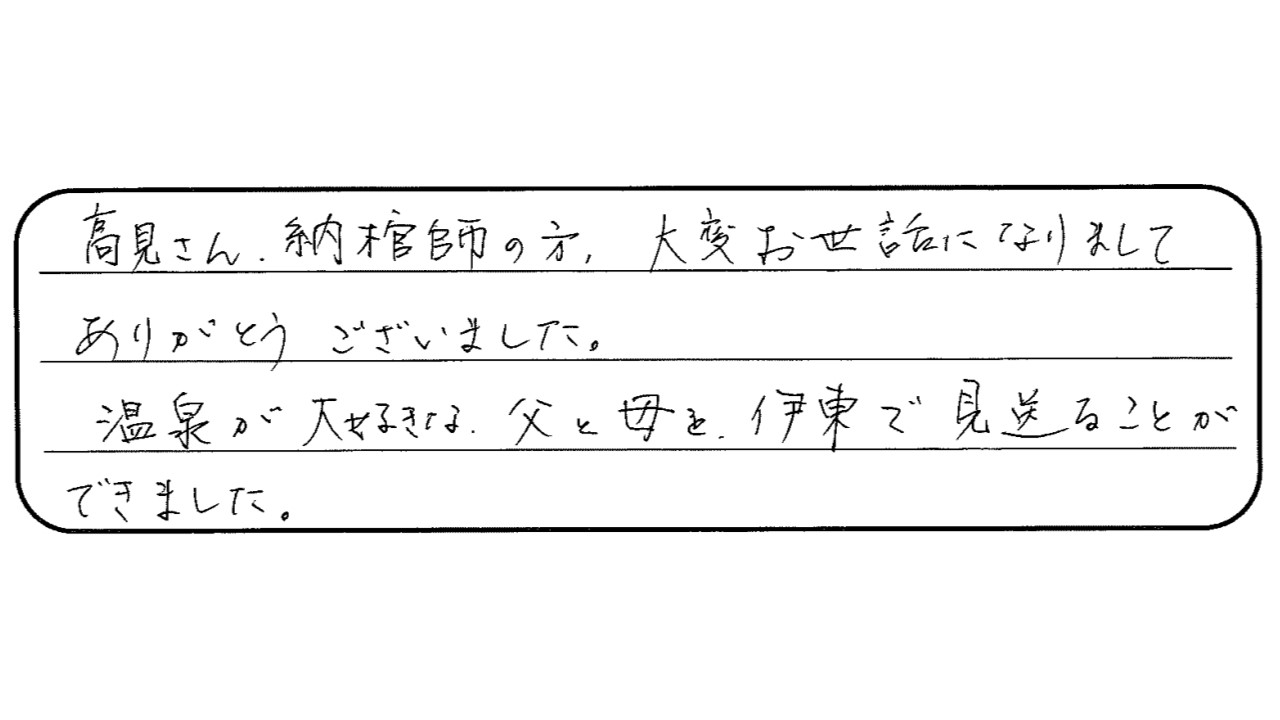 高見さん、納棺師の方、大変お世話になりまして
ありがとうございました。
温泉が大好きな、父と母を、伊東で見送ることが
できました。